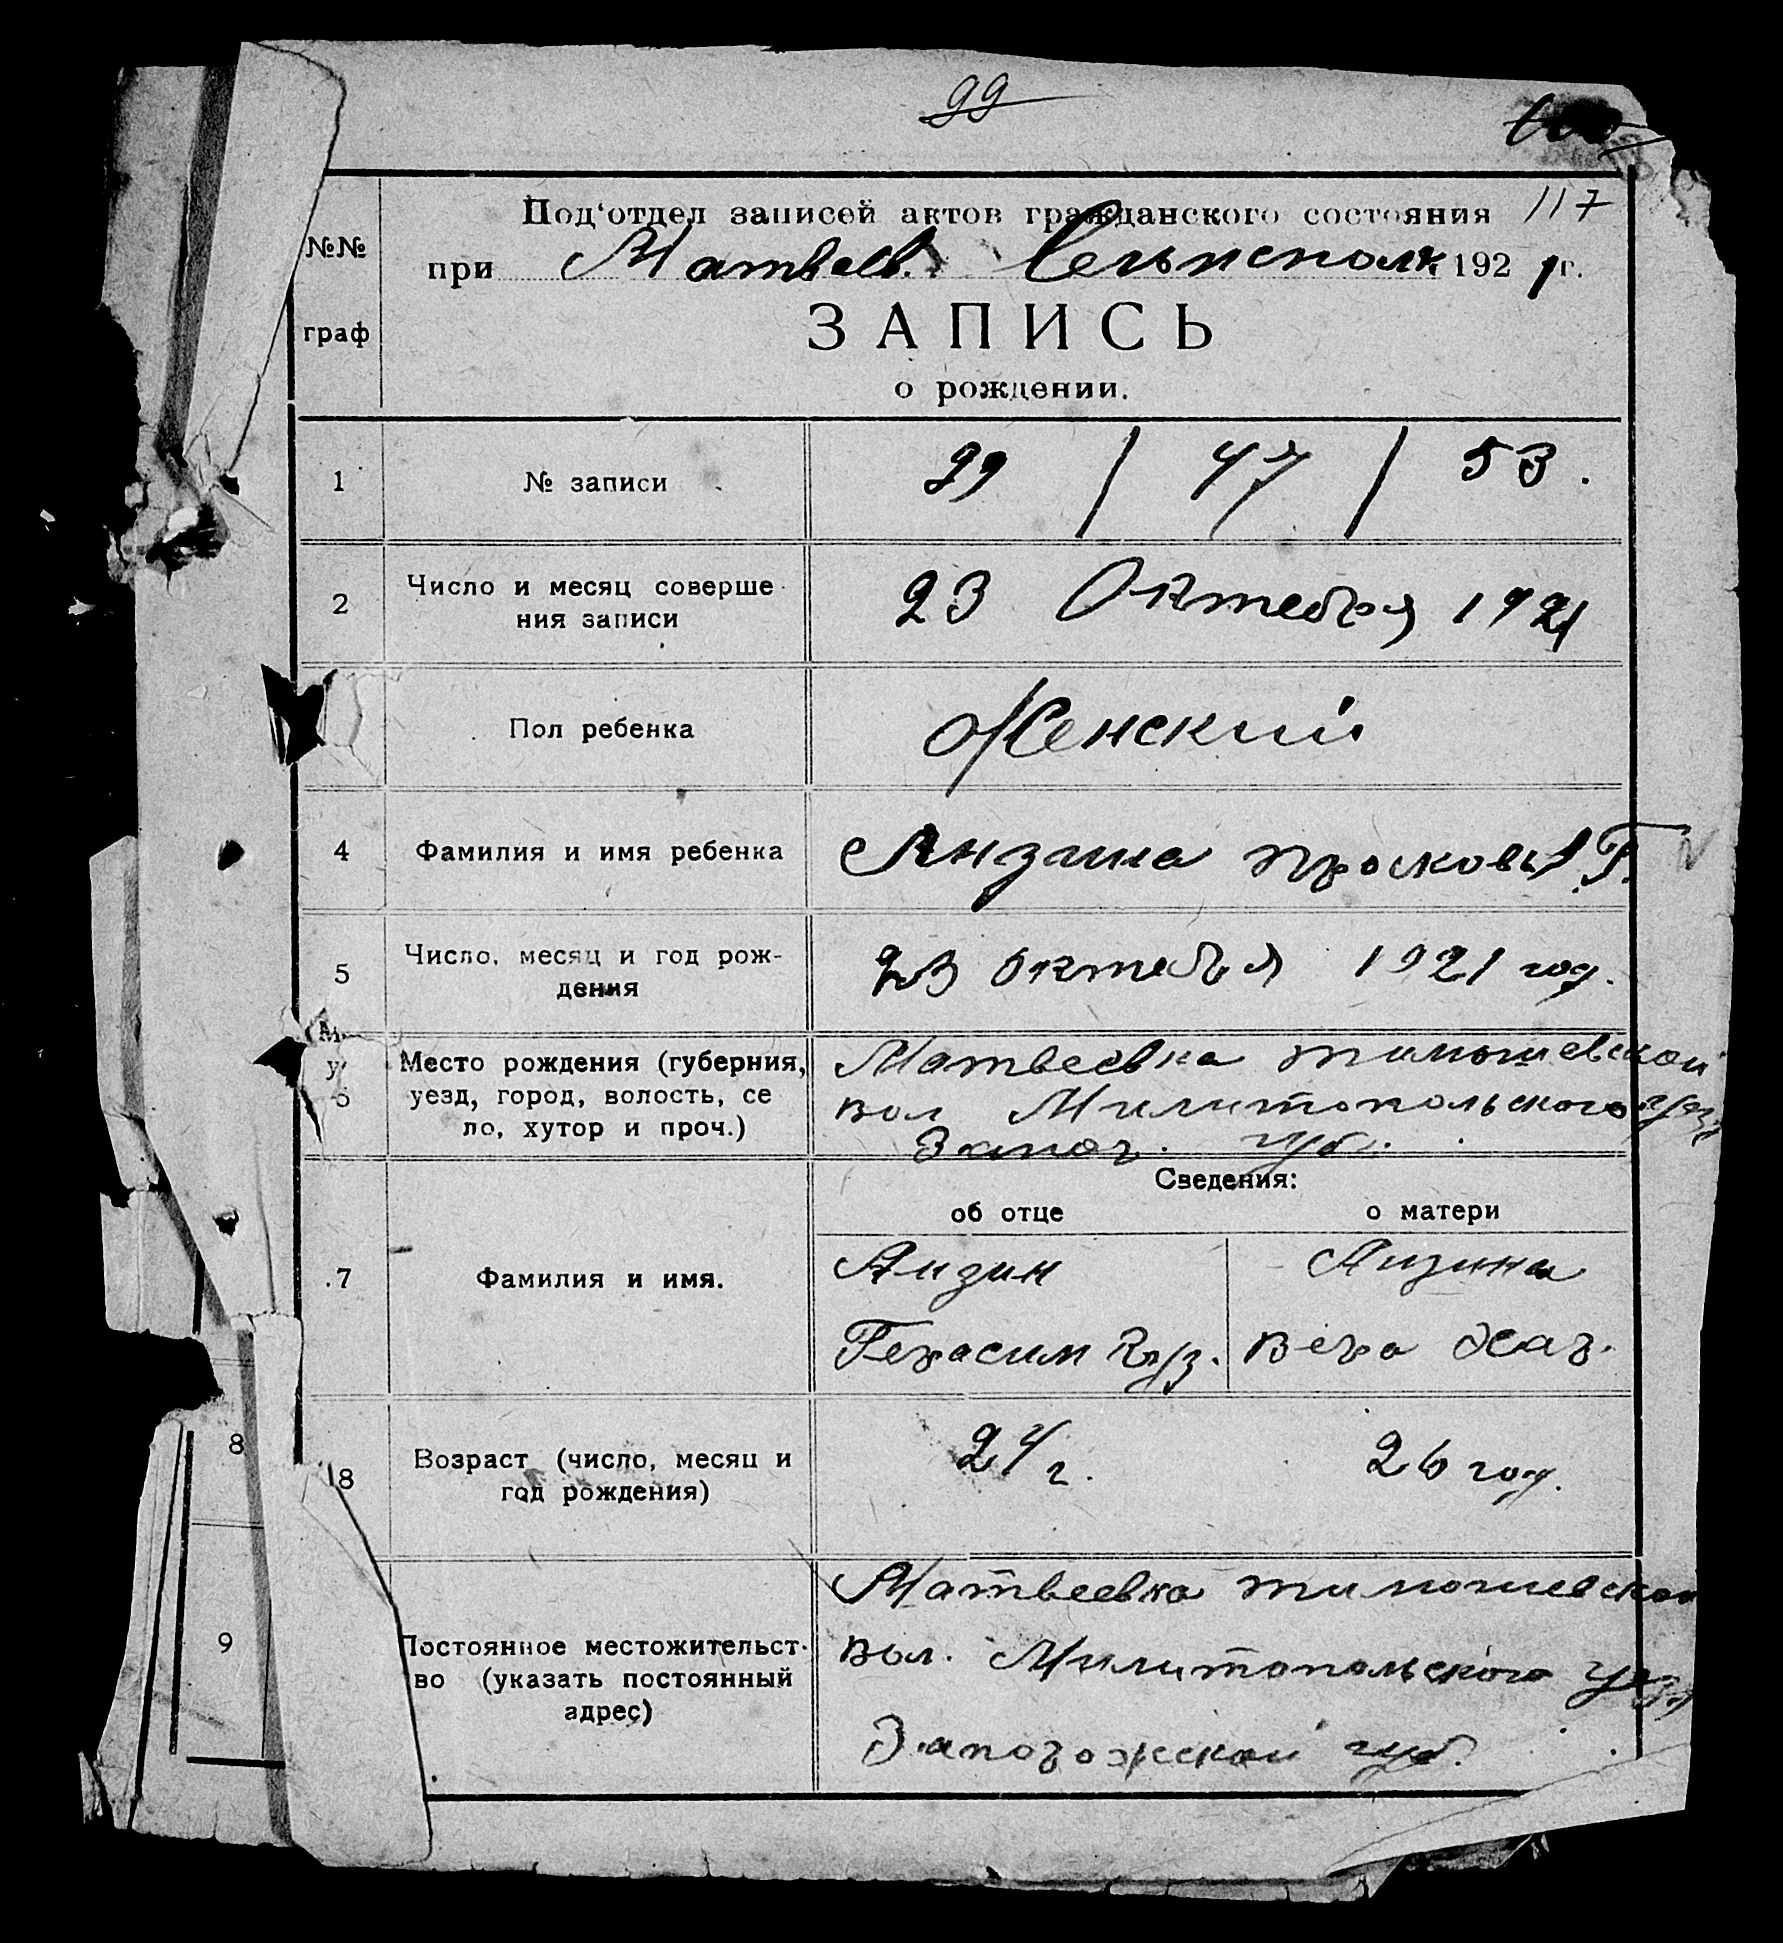 99
117
Под'отдел записей актов гражданского состояния
№№
при Матвеев. Сельисполк 1921 г.
граф
ЗАПИСЬ
о рождении.
1 № записи 99 / 47 / 53.
2 Число и месяц соверше
ния записи 23 Октября 1921
Пол ребенка Женский
4 Фамилия и имя ребенка Анзина Просковья Г.
5 Число, месяц и год рож-
дения 23 октебря 1921 год.
6 Место рождения (губерния,
уезд, город, волость, се
ло, хутор и проч.)
Матвеевка тимошевской
вол Милитопольского уез
Запор. губ.
Сведения:
об отце о матери
7 Фамилия и имя.
Анзин Анзина
Герасим Куз. Вера Хар.
8
18 Возраст (число, месяц и
год рождения)
24 г. 26 год.
9 Постоянное местожительст-
во (указать постоянный
адрес)
Матвеевка тимошевской
вол. Милитопольского уез
Запорожской губ.